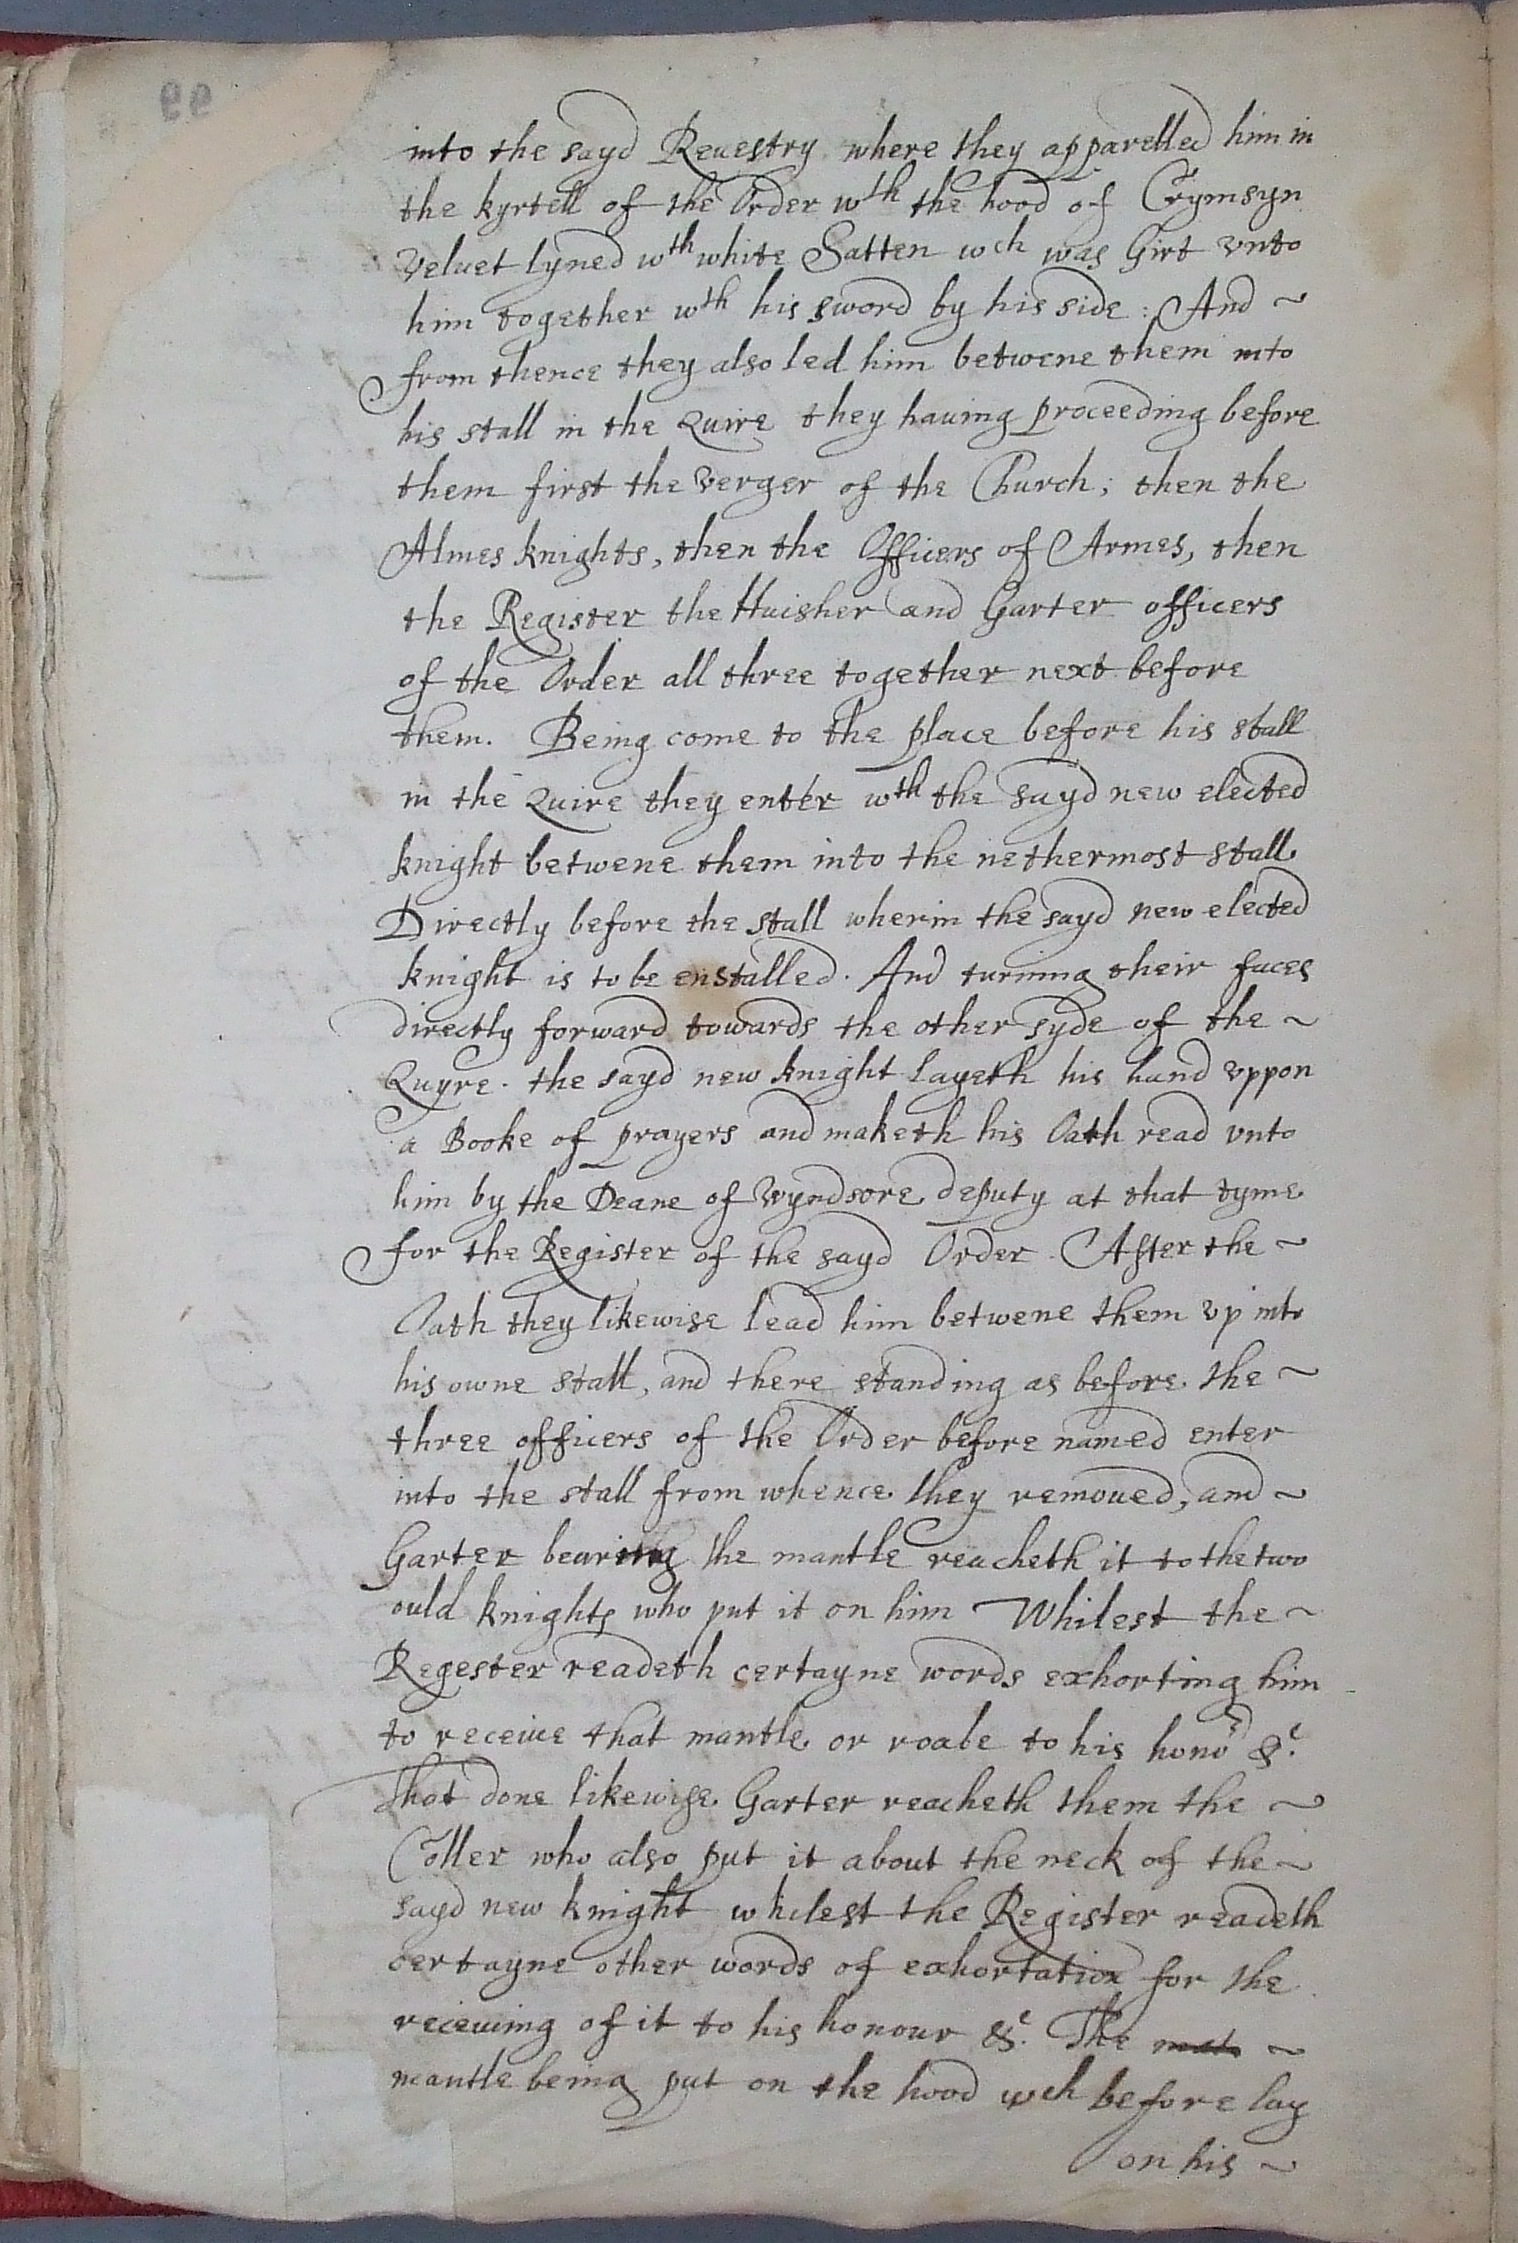 into the sayd Reuestry where they apparelled him in
the kyrtell of the Order wth the hood of Crymsyn
veluet lyned wth white Satten wch was Girt vnto
him together wth his sword by his side : And ~
from thence they also led him betwene them into
his stall in the Quire they hauing proceeding before
them first the verger of the Church; then the
Almes knights, then the Officers of Armes, then
the Register the Huisher and Garter officers
of the Order all three together next before
them. Being come to the place before his stall
in the Quire they enter wth the sayd new elected
knight betwene them into the nethermost stall
Directly before the stall wherin the sayd new elected
knight is to be enstalled. And turning their faces
directly forward towards the other syde of the ~
Quyre. the sayd new knight layeth his hand vppon
a Booke of prayers and maketh his Oath read vnto
him by the Deane of Wyndsore deputy at that tyme
for the Register of the sayd Order. After the ~
Oath they likewise lead him betwene them vp into
his owne stall, and there standing as before the ~
three officers of the Order before named enter
into the stall from whence they remoued, and ~
Garter bearing the mantle reacheth it to the two
ould knights who put it on him Whilest the ~
Regester readeth certayne words exhorting him
to receiue that mantle or roabe to his honor &c.
that done likewise Garter reacheth them the ~
Coller who also put it about the neck of the ~
sayd new knight whilest the Register readeth
certayne other words of exhortation for the
receiuing of it to his honour &c. The mat ~
mantle being put on the hood wch before lay
on his ~